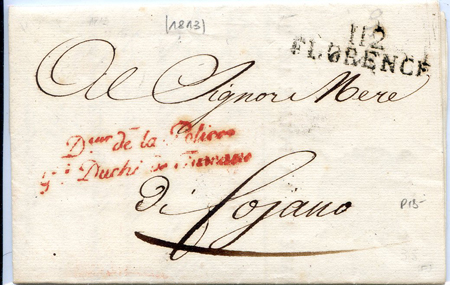 (1813)
112
FLORENCE
Al Signor Mere
D.eur de la Police
g.l Duché de Toscane
Di Lojano
P15-